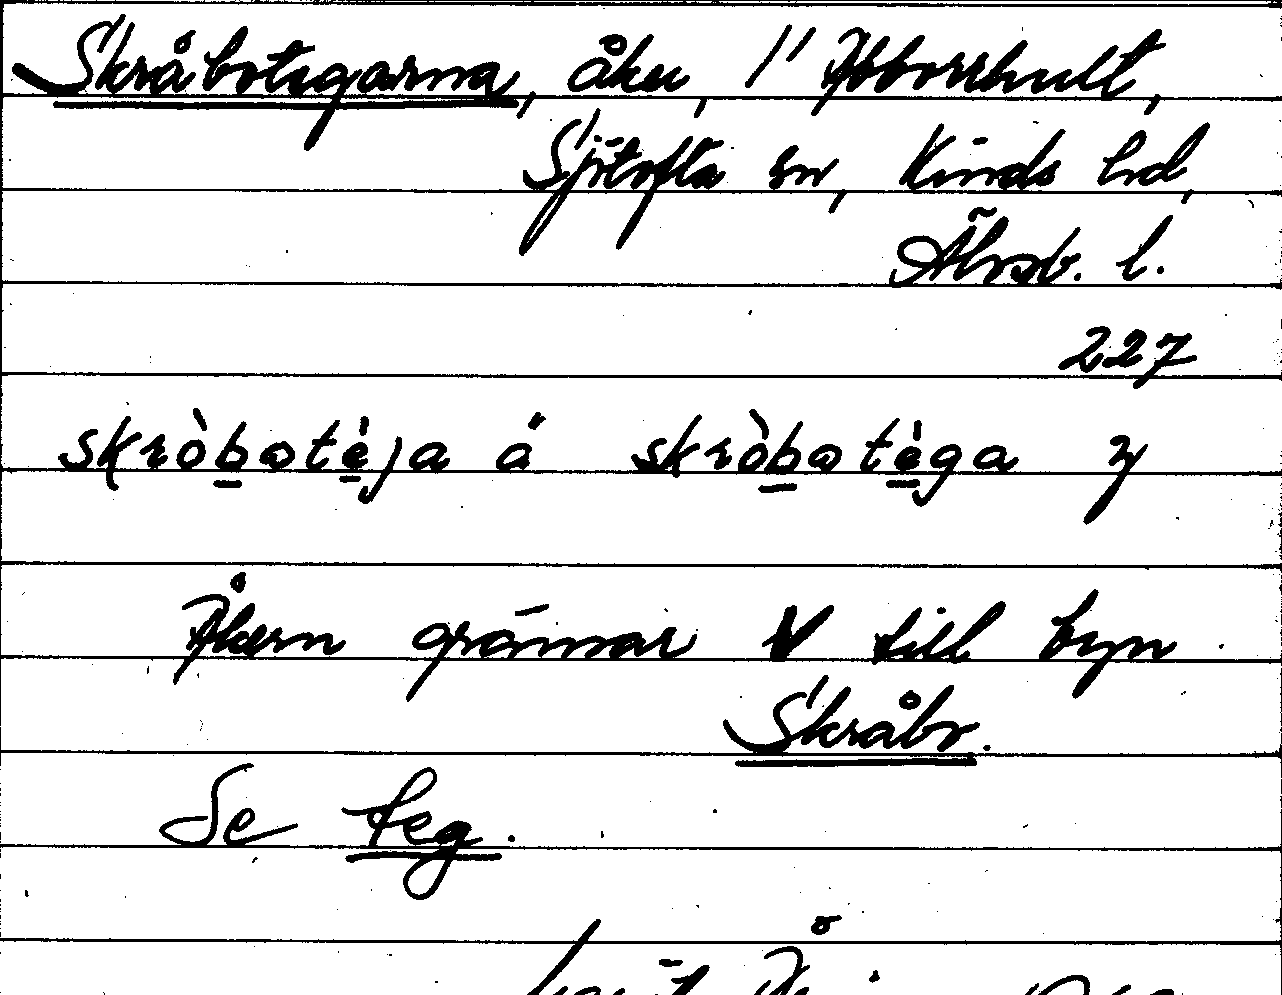 Skråbotegarna, åker, 1/1 Abborrhult,
Sjötofta sn, Kinds hd,
Älvsb. l.
227
skròbotèja á skròbotèga
Åkern gränsar V till byn
Skråbo.
Se teg.